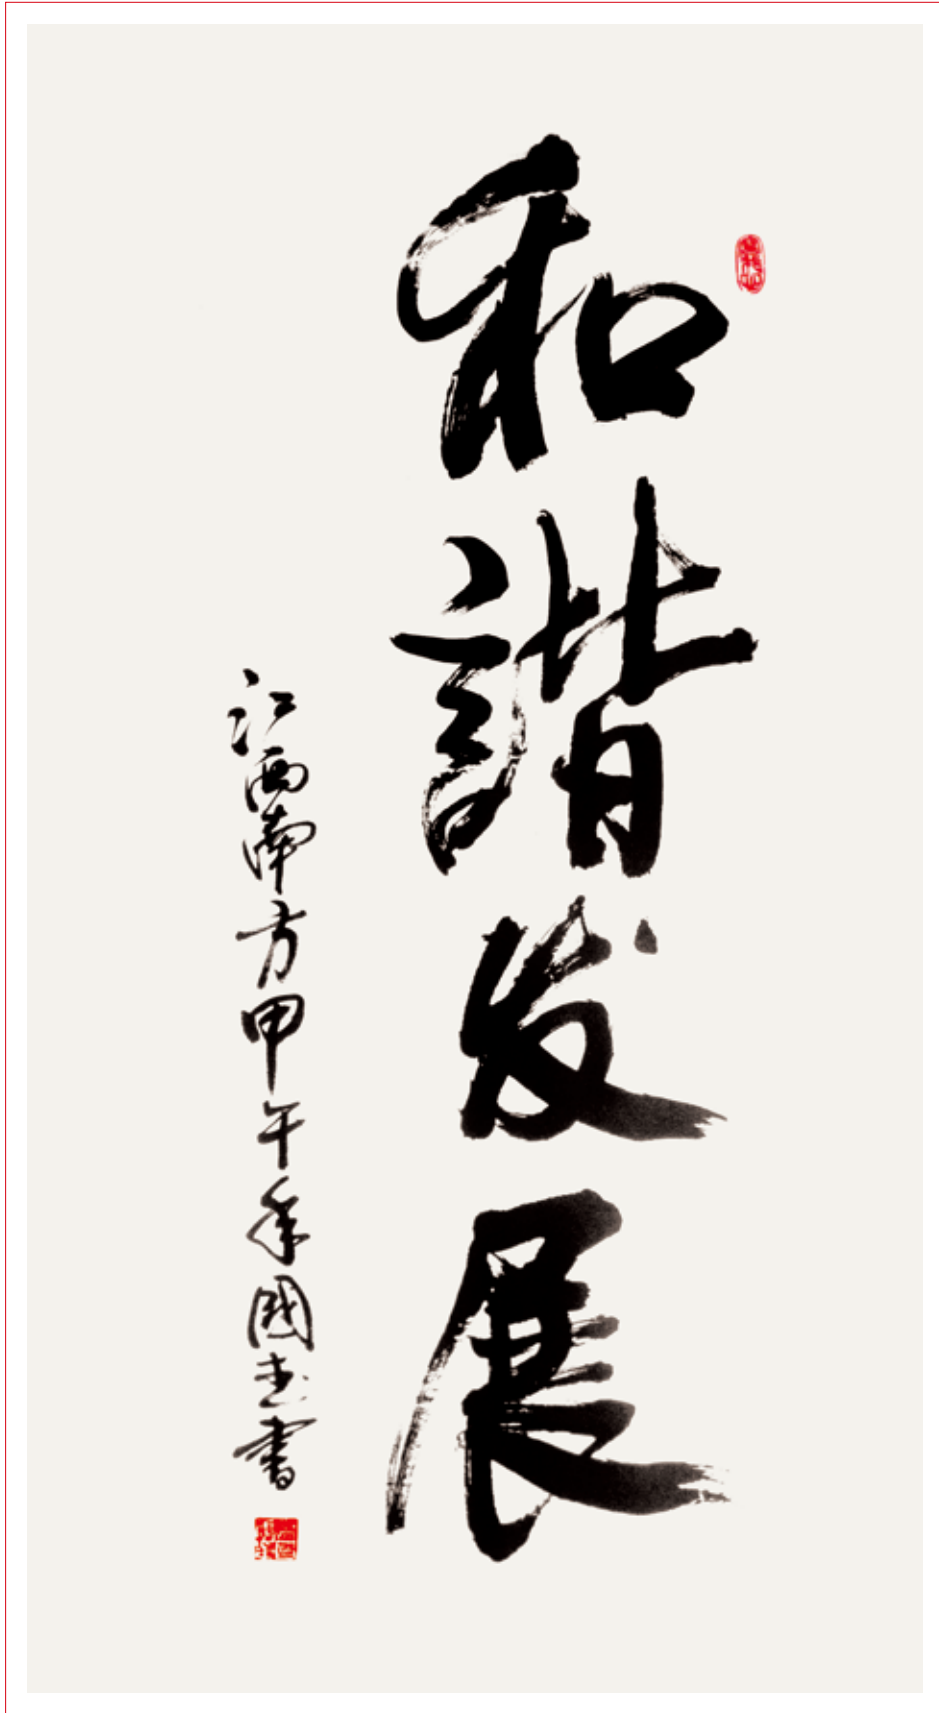 和諧发展
江西南方甲午年國志書